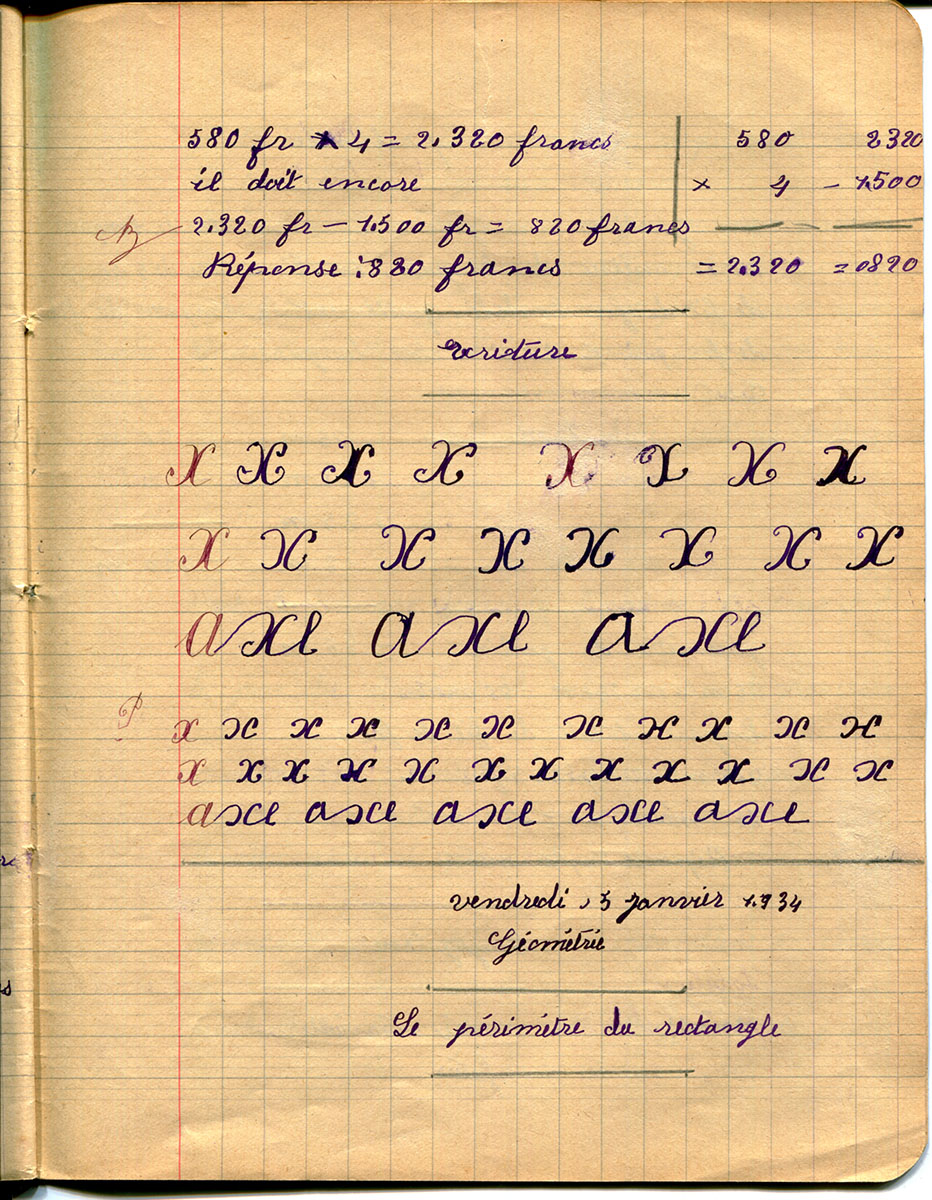 580 fr × 4 = 2.320 francs 580 2320
il doit encore × 4 - 1.500
B 2.320 fr - 1.500 fr = 820 francs
Réponse : 820 francs = 2.320 = 0820
Ecriture
x x x x x x x x
x x x x x x x x
axe axe axe
x x x x x x x x x x x
x x x x x x x x x x x x
axe axe axe axe axe
vendredi, 5 janvier 1934
Géométrie
Le périmètre du rectangle